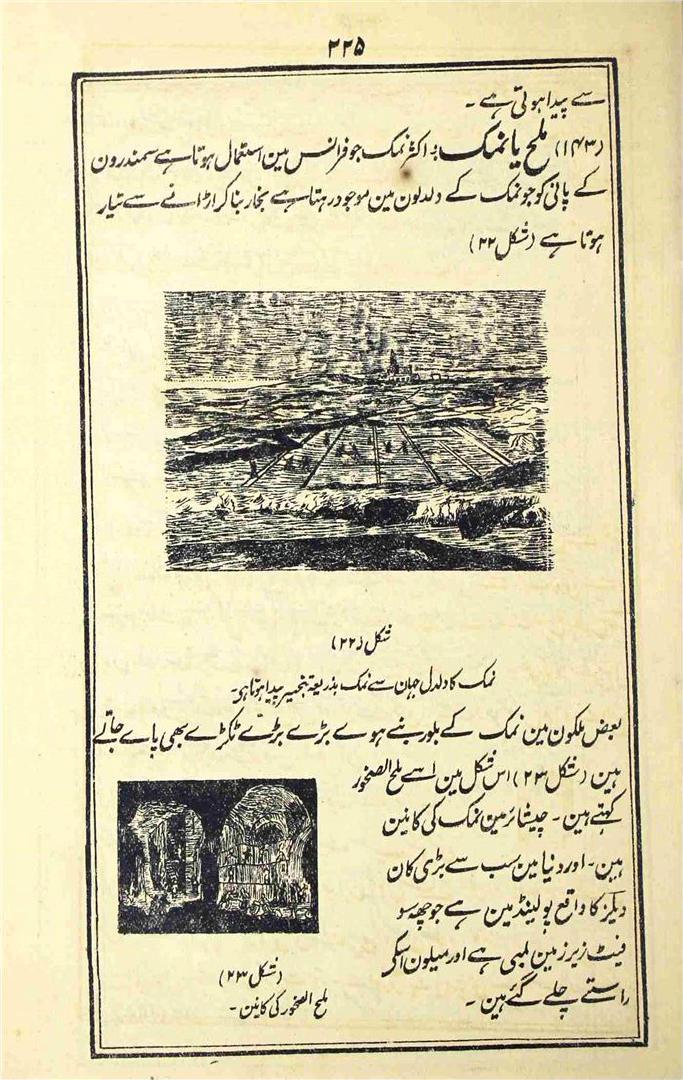 ۲۲۵
سے پیدا ہوتی ہے ۔
(۱۴۳) ملح یا نمک : اکثر نمک جو فرانس مین استعمال ہوتا ہے سمندرون
کے پانی کو جو نمک کے دلدلون مین موجود رہتا ہے بخار بنا کر اڑانے سے تیار
ہوتا ہے (شکل ۲۲)
شکل (۲۲)
نمک کا دلدل جہان سے نمک بذریعۂ تبخیر پیدا ہوتا ہی ۔
بعض ملکون مین نمک کے بلور بنے ہوے بڑے بڑے ٹکڑے بھی پاے جاتے
ہین (شکل ۲۳) اس شکل مین اسے ملح الصخور
کہتے ہین ۔ چیشائر مین نمک کی کانین
ہین ۔ اور دنیا مین سب سے بڑی کان
ویکزکا واقع پولینڈ مین ہے جو چھہ سو
فیٹ زیر زمین لمبی ہے اور میلون اسکے
راستے چلے گئے ہین ۔
(شکل ۲۳)
ملح الصخور کی کانین ۔